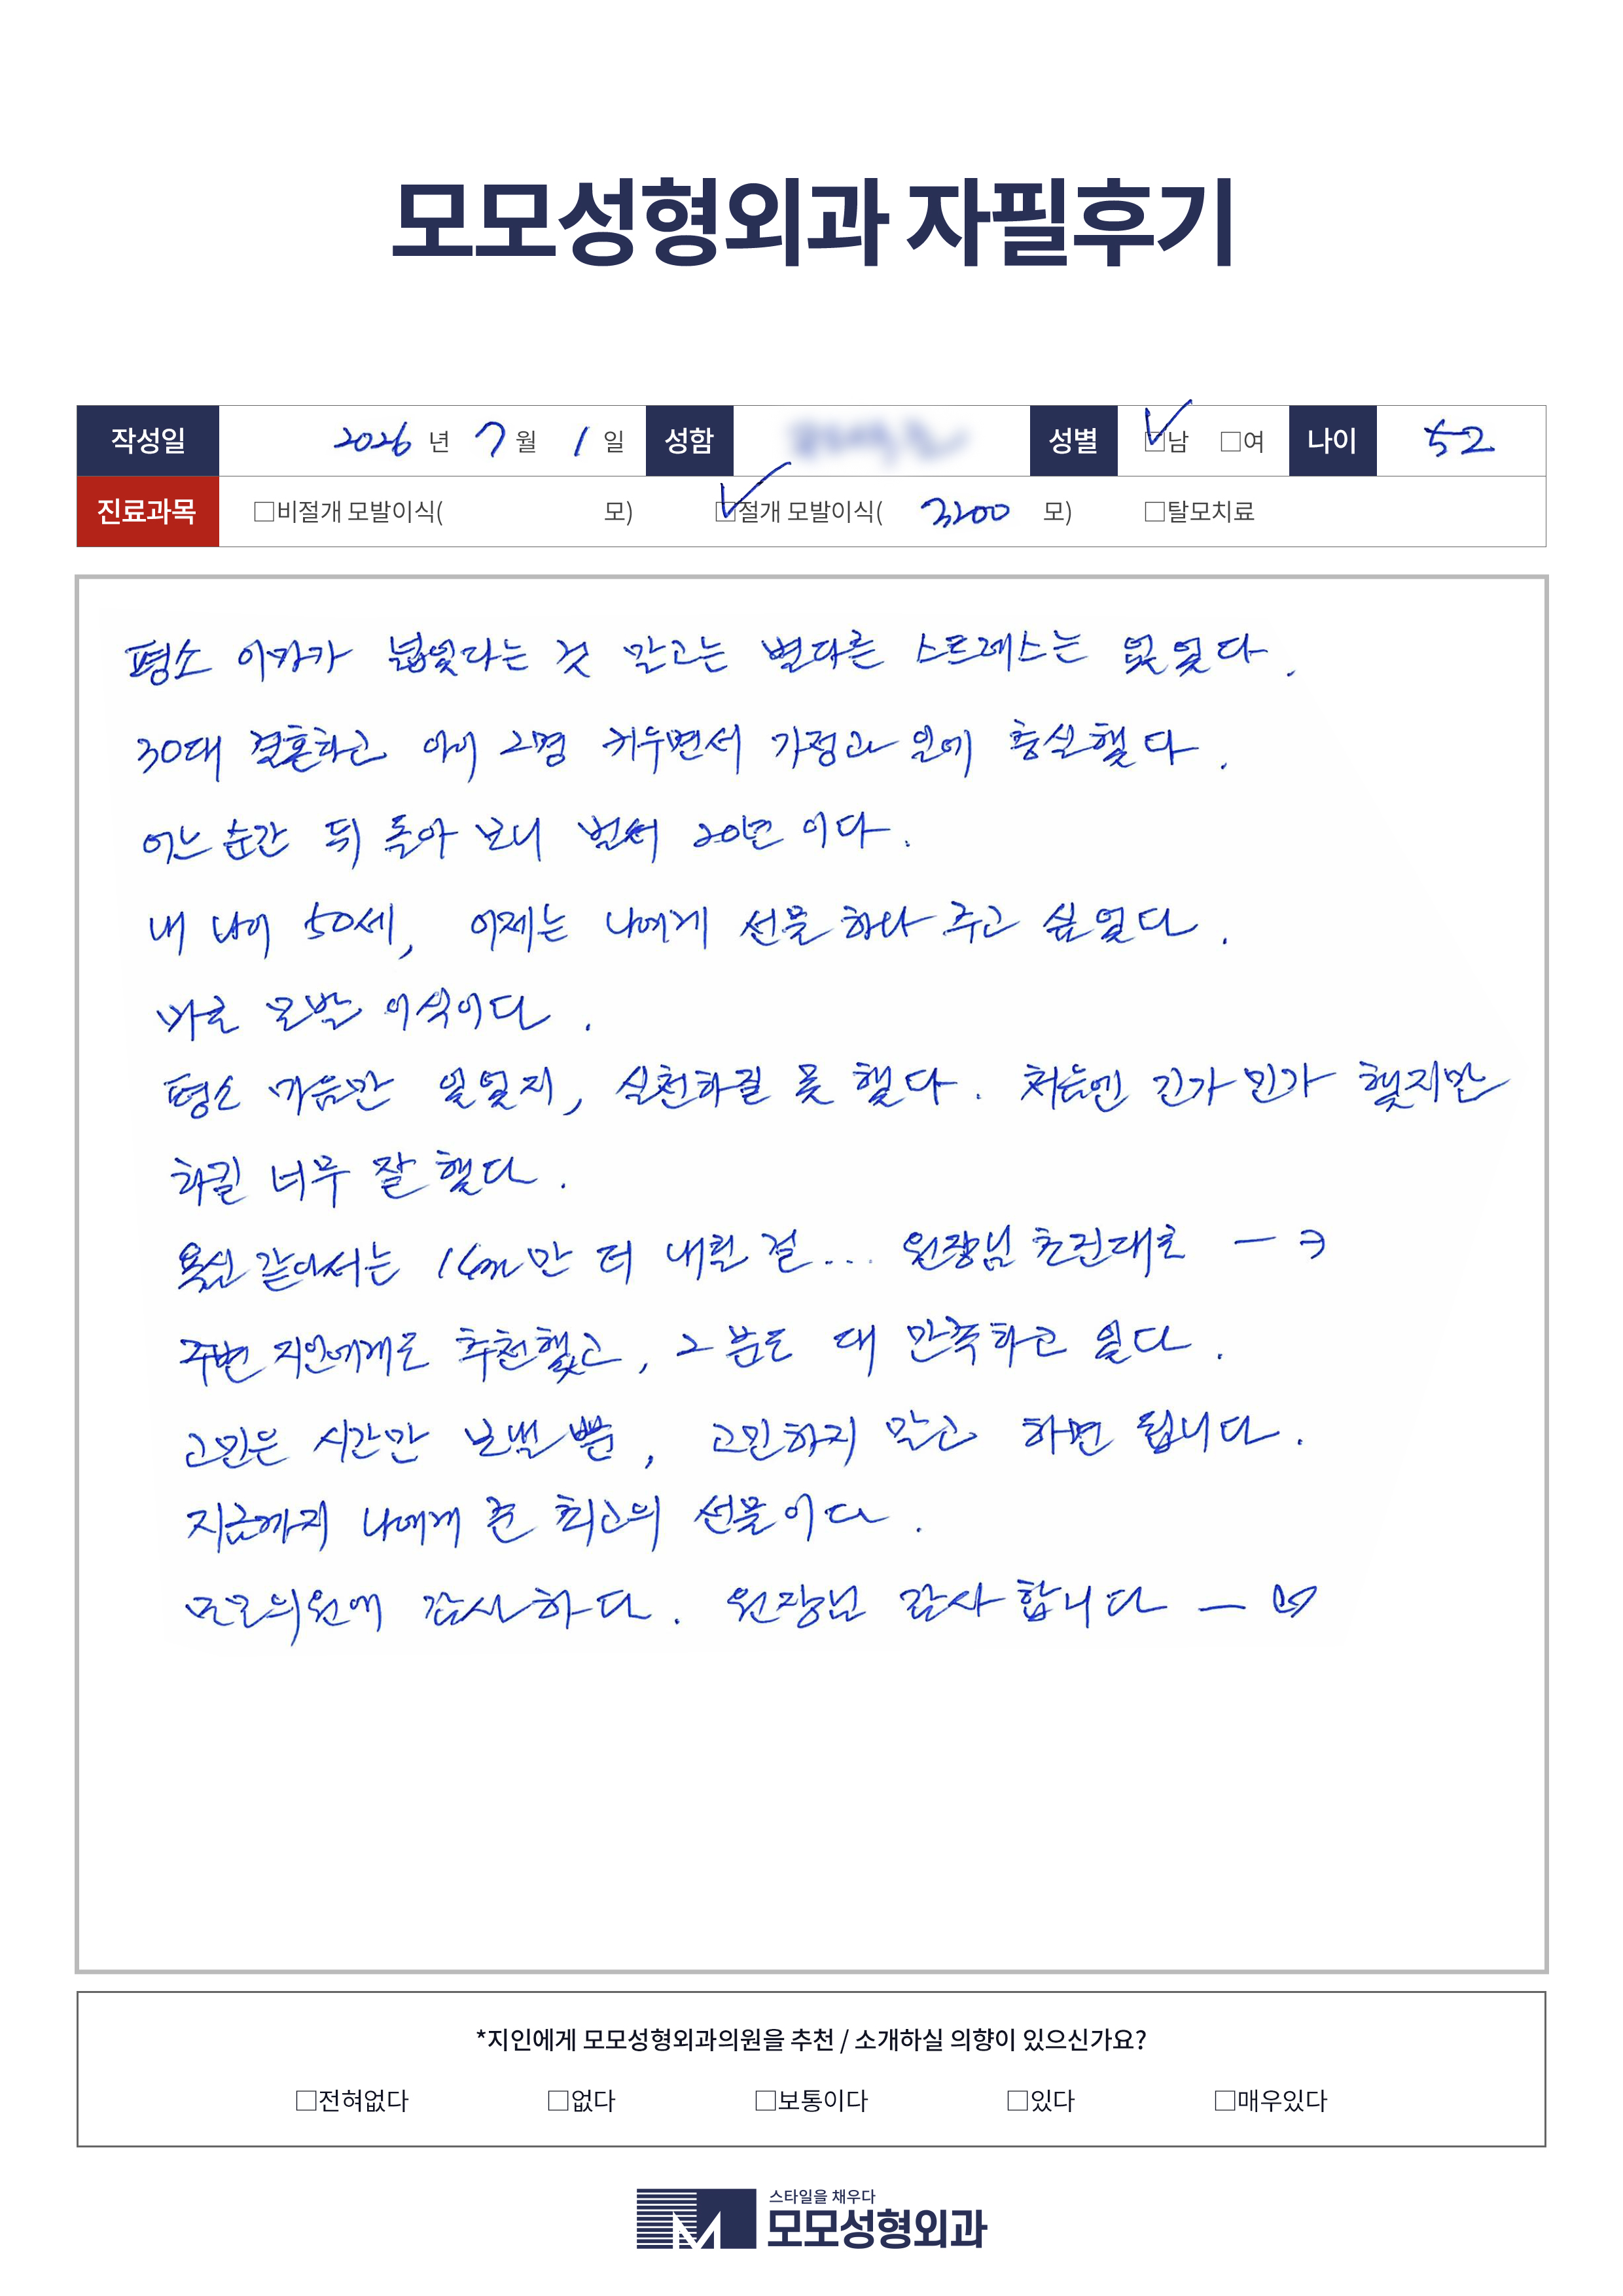 모모성형외과 자필후기
작성일 2026 년 7 월 1 일 성함 성별 □남 □여 나이 52
진료과목 □비절개 모발이식( 모) □절개 모발이식( 3200 모) □탈모치료
평소 이마가 넓었다는 것 말고는 별다른 스트레스는 없었다.
30대 결혼하고 아이 2명 키우면서 가정과 일에 충실했다.
어느 순간 뒤 돌아 보니 벌써 20년 이다.
내 나이 50세, 이제는 나에게 선물 하나 주고 싶었다.
바로 모발 이식이다.
평소 마음만 있었지, 실천하질 못 했다. 처음엔 긴가 민가 했지만
하길 너무 잘 했다.
욕심 같아서는 1cm만 더 내릴 걸... 원장님 추천대로
주변 지인에게도 추천했고, 그 분도 대 만족하고 있다.
고민은 시간만 보낼 뿐, 고민하지 말고 하면 됩니다.
지금까지 나에게 준 최고의 선물이다.
모모의원에 감사하다. 원장님 감사합니다 ㅡ ♡
*지인에게 모모성형외과의원을 추천 / 소개하실 의향이 있으신가요?
□전혀없다 □없다 □보통이다 □있다 □매우있다
스타일을 채우다
모모성형외과